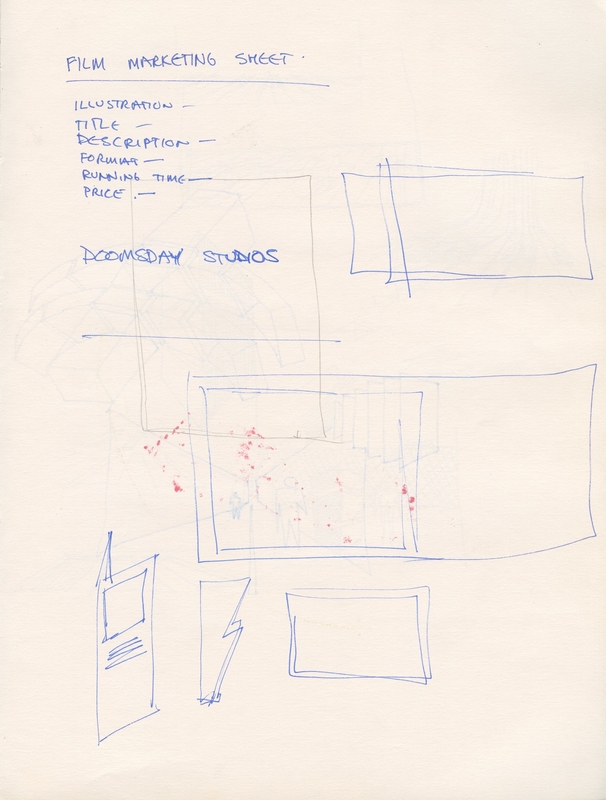 FILM MARKETING SHEET.
ILLUSTRATION —
TITLE —
DESCRIPTION —
FORMAT —
RUNNING TIME —
PRICE . —
DOOMSDAY STUDIOS